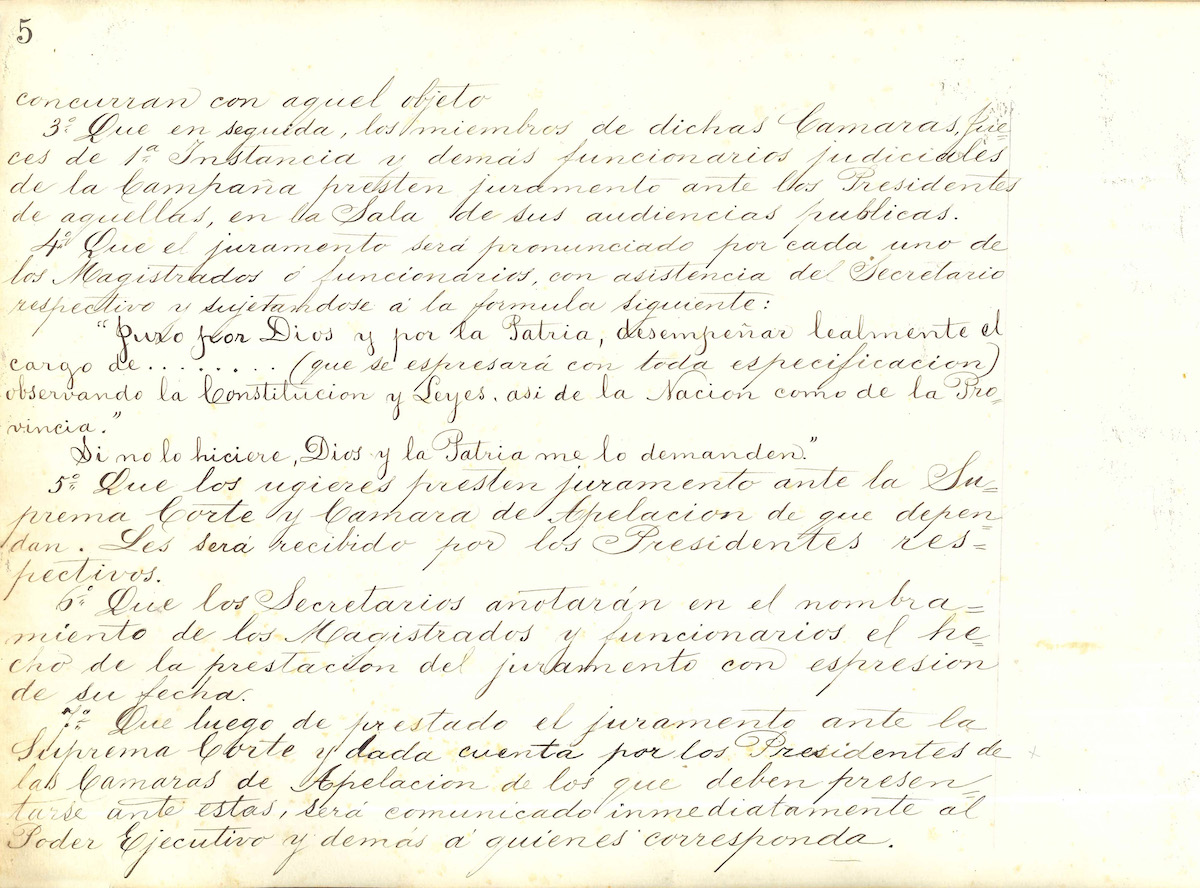 5
concurran con aquel objeto
3º Que en seguida, los miembros de dichas Camaras, Jue=
ces de 1ª Instancia y demás funcionarios judiciales
de la Campaña presten juramento ante los Presidentes
de aquellas, en la Sala de sus audiencias publicas.
4º Que el juramento será pronunciado por cada uno de
los Magistrados ó funcionarios, con asistencia del Secretario
respectivo y sujetandose á la formula siguiente:
"Juro por Dios y por la Patria, desempeñar lealmente el
cargo de......... (que se espresará con toda especificacion)
observando la Constitucion y Leyes. asi de la Nacion como de la Pro-
vincia."
Si no lo hiciere, Dios y la Patria me lo demanden."
5º Que los ugieres presten juramento ante la Su=
prema Corte y Camara de Apelacion de que depen=
dan. Les será recibido por los Presidentes res=
pectivos.
6º Que los Secretarios anotarán en el nombra=
miento de los Magistrados y funcionarios el he=
cho de la prestacion del juramento con espresion
de su fecha.
7º Que luego de prestado el juramento ante la
Suprema Corte y dada cuenta por los Presidentes de
las Camaras de Apelacion de los que deben presen=
tarse ante estas, será comunicado inmediatamente al
Poder Ejecutivo y demás á quienes corresponda.